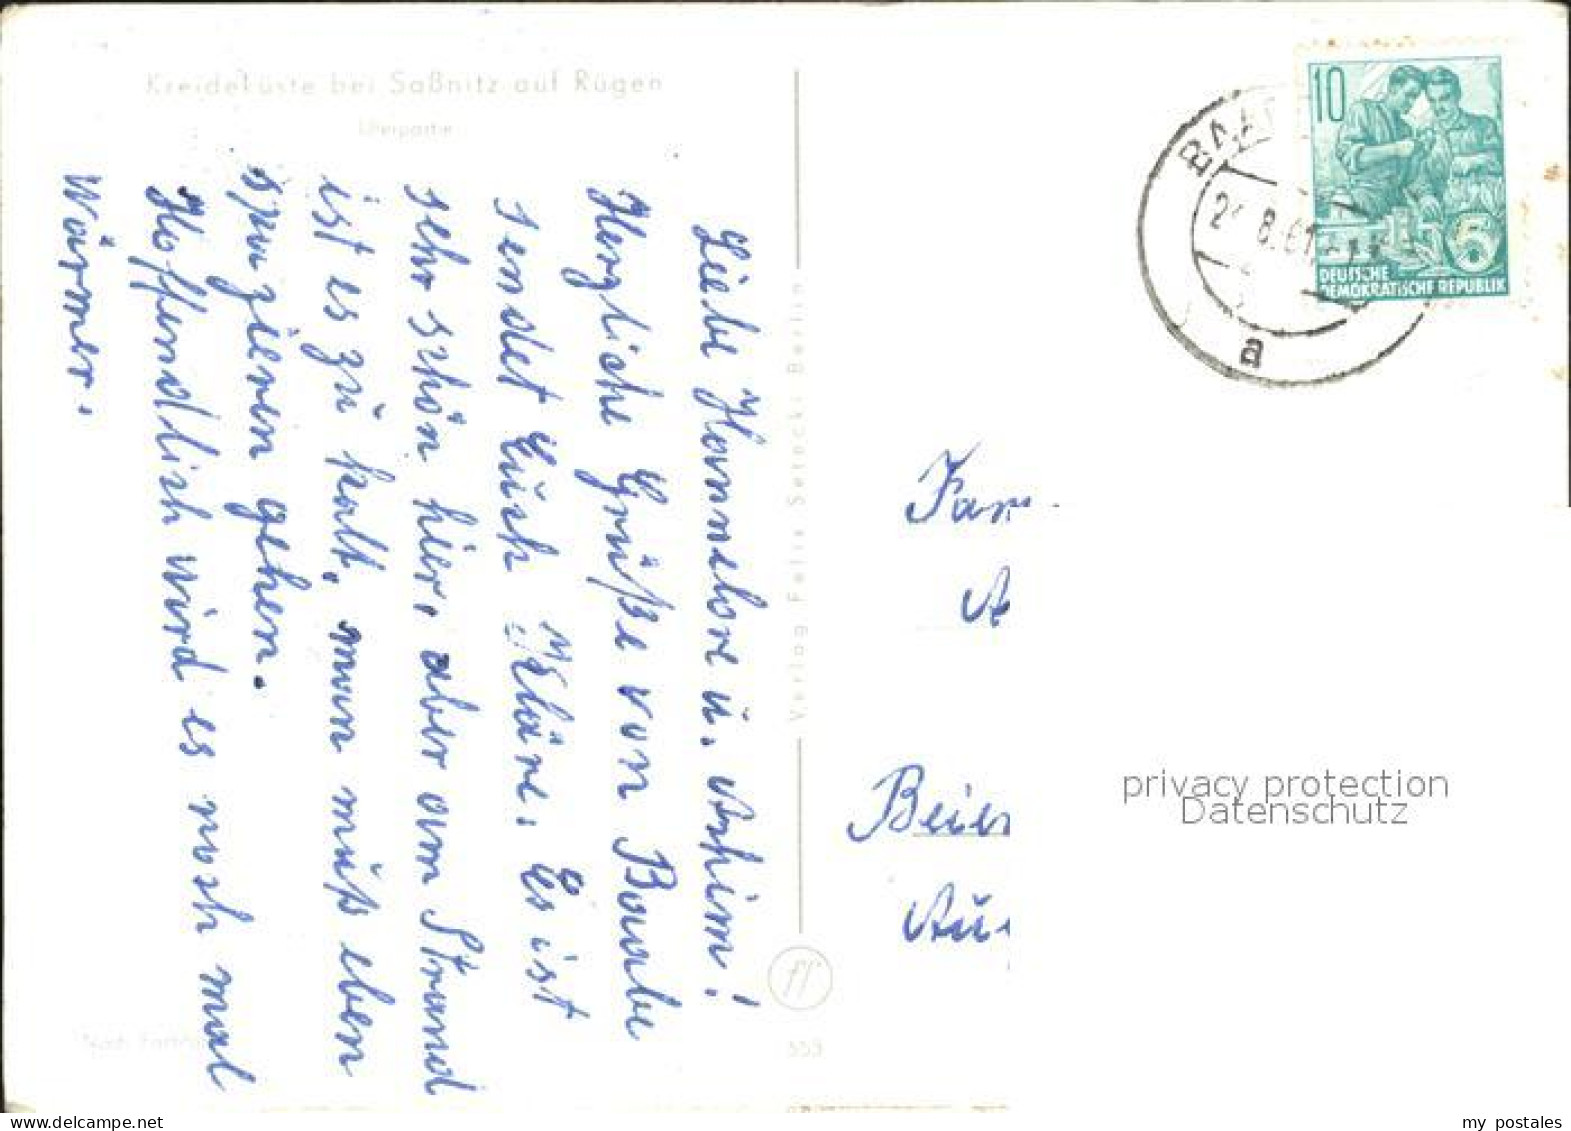 Kreideküste bei Saßnitz auf Rügen
Uferpartie
Liebe Hannelore u. Achim!
Herzliche Grüße von Baabe
sendet Euch Kläre. Es ist
sehr schön hier, aber am Strand
ist es zu kalt, man muß eben
spazieren gehen.
Hoffendlich wird es noch mal
Wärmer.
Verlag Felix Setecki Berlin
ff
559
10
DEUTSCHE
DEMOKRATISCHE REPUBLIK
8.61
a
Fam
A
Beier
Au
privacy protection
Datenschutz
my postales